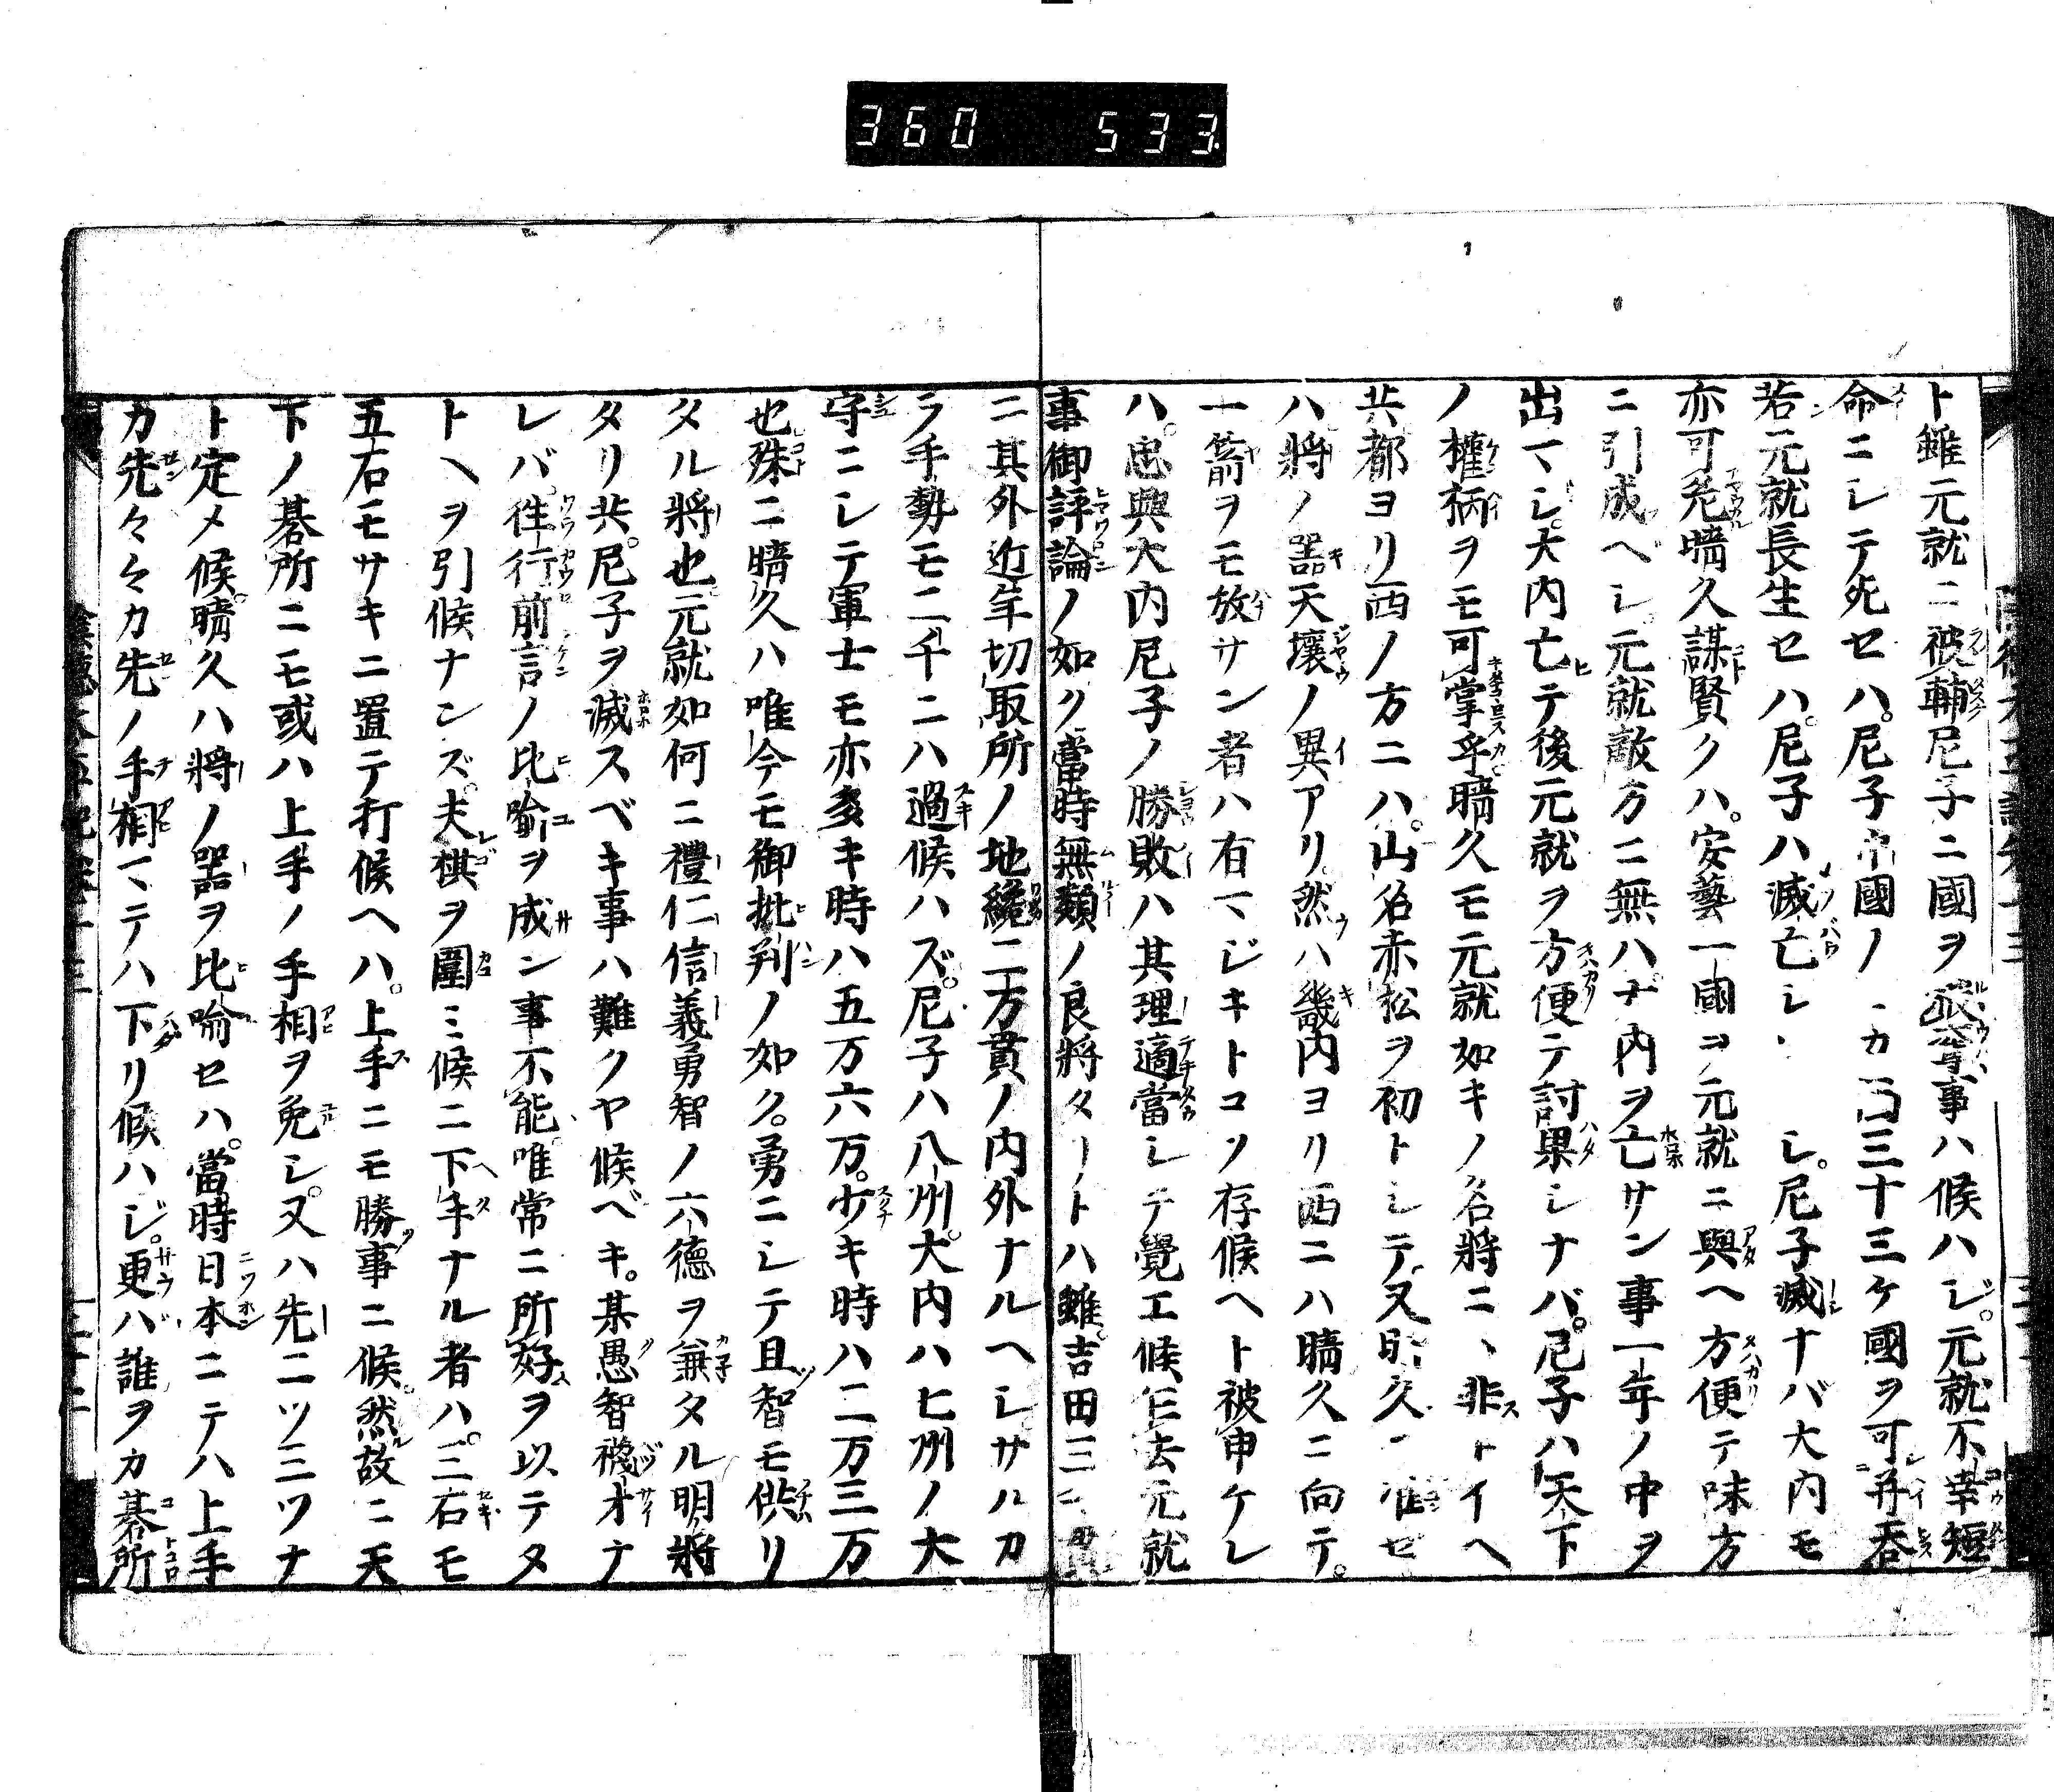 360 533
ト雖元就ニ被輔尼子ニ國ヲ事ハ候ハジ。元就不幸短
命ニシテ死セハ。尼子中國ノカ三十三ケ國ヲ可并呑
若元就長生セハ。尼子ハ滅亡シシ。尼子滅ナバ大内モ
亦可危晴久謀賢クハ。安藝一國ヲ元就ニ與ヘ方便テ味方
ニ引成ベシ。元就敵方ニ無ハ大内ヲ亡サン事一年ノ中ヲ
出マシ。大内亡テ後元就ヲ方便テ討果シナバ。尼子ハ天下
ノ權柄ヲモ可掌乎晴久モ元就如キノ名將ニ、非トイヘ
共都ヨリ西ノ方ニハ。山名赤松ヲ初トシテ又晴久ニ准セ
ハ將ノ器天壤ノ異アリ。然ハ畿内ヨリ西ニハ晴久ニ向テ。
一箭ヲモ放サン者ハ有マジキトコソ存候ヘト被申ケレ
ハ。忠興大内尼子ノ勝敗ハ其理適當シテ覺エ候乍去元就
事御評論ノ如ク當時無類ノ良將タリトハ雖。吉田三千貫
ニ其外近年切取所ノ地纔二万貫ノ内外ナルヘシサルカ
ラ手勢モ二千ニハ過候ハズ。尼子ハ八州。大内ハ七州ノ大
守ニシテ軍士モ亦多キ時ハ五万六万。少キ時ハ二万三万
也殊ニ晴久ハ唯今モ御批判ノ如ク。勇ニシテ且智モ供リ
タル將也元就如何ニ禮仁信義勇智ノ六德ヲ兼タル明將
タリ共。尼子ヲ滅スベキ事ハ難クヤ候ベキ。某愚智襪才ナ
レバ。往行前言ノ比喩ヲ成ン事不能。唯常ニ所好ヲ以テタ
トヘヲ引候ナンズ。夫棋ヲ圍ミ候ニ下手ナル者ハ。三石モ
五石モサキニ置テ打候ヘハ。上手ニモ勝事ニ候。然故ニ天
下ノ碁所ニモ或ハ上手ノ手相ヲ免シ。又ハ先二ツ三ツナ
ト定メ候。晴久ハ將ノ器ヲ比喩セハ。當時日本ニテハ上手
カ先々々カ先ノ手相マテハ下リ候ハジ。更ハ誰ヲカ碁所